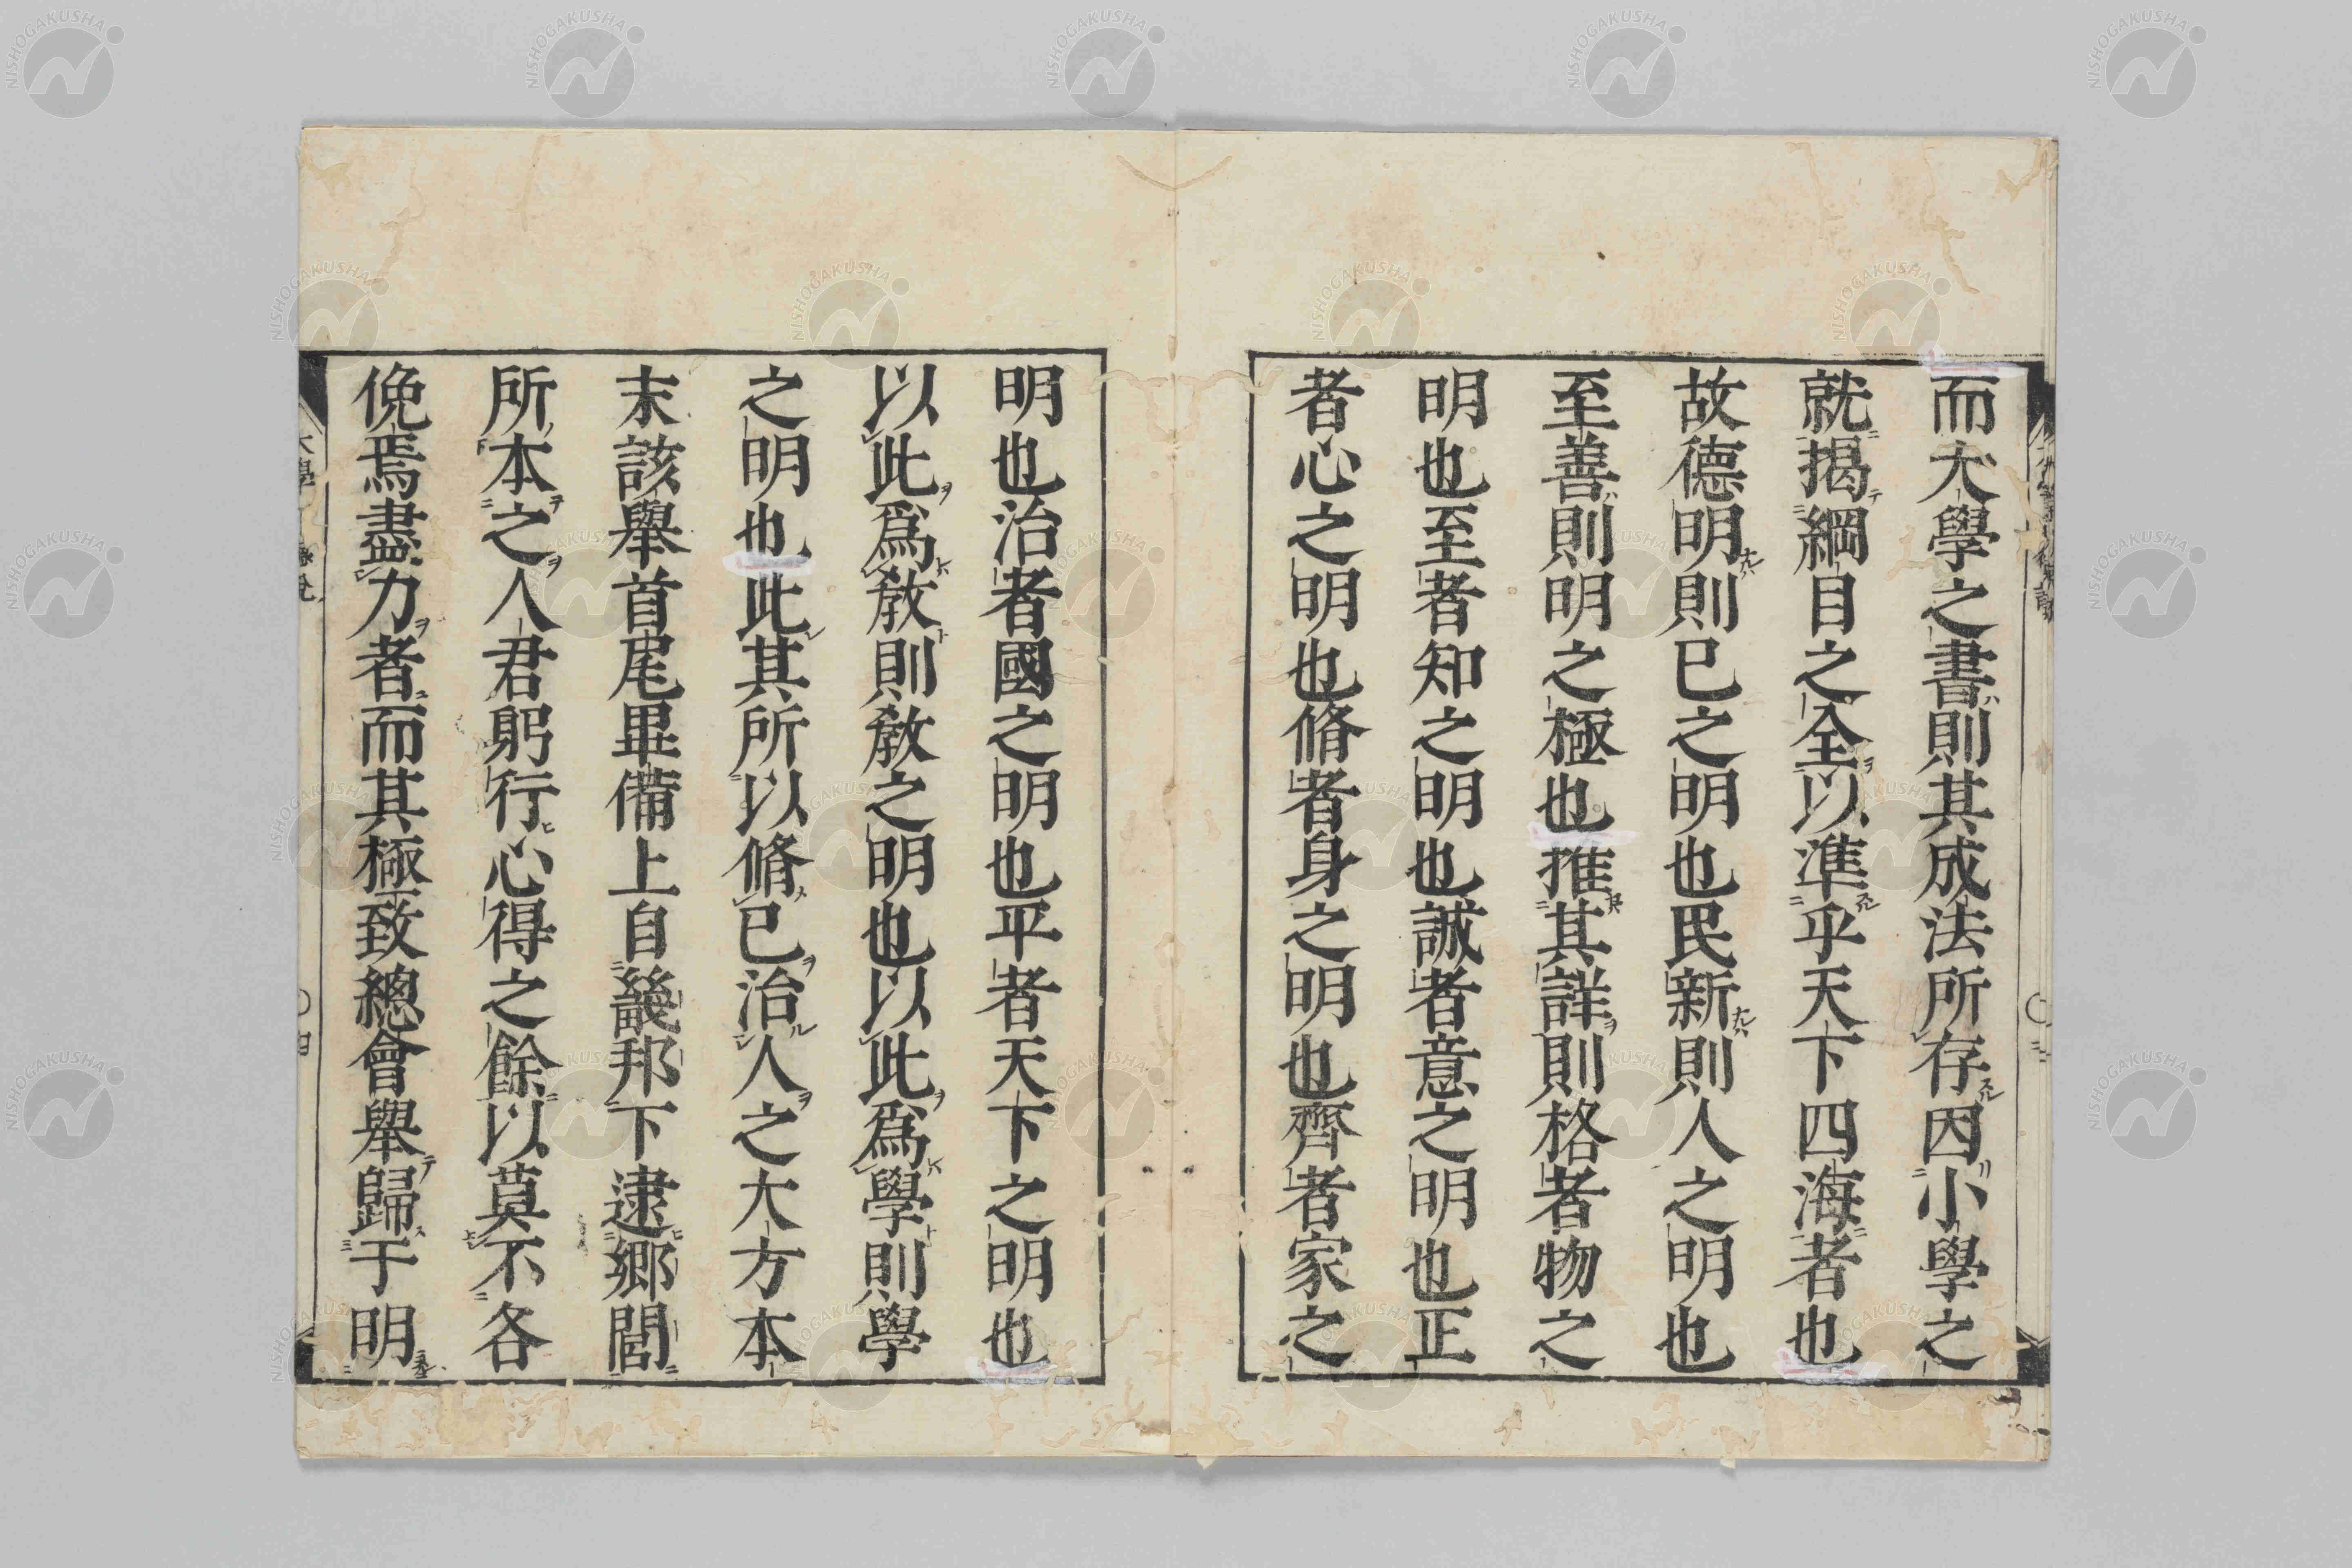 而大學之書則其成法所存因小學之
就揭綱目之全以準乎天下四海者也
故德明則已之明也民新則人之明也
至善則明之極也推其詳則格者物之
明也至者知之明也誠者意之明也正
者心之明也脩者身之明也齊者家之
明也治者國之明也平者天下之明也
以此爲敎則敎之明也以此爲學則學
之明也此其所以脩已治人之大方本
末該擧首尾畢備上自畿邦下逮鄉閭
所本之人君躬行心得之餘以莫不各
俛焉盡力者而其極致總會擧歸于明
NISHOGAKUSHA